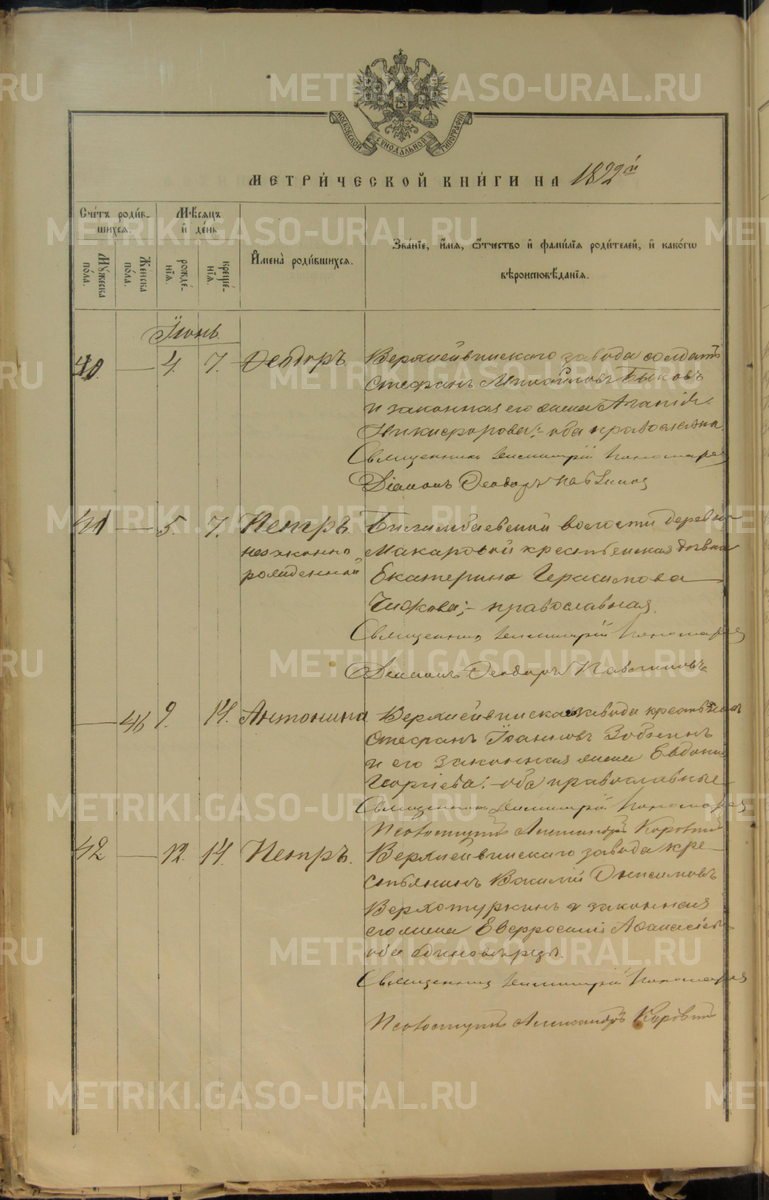 METRIKI.GASO-URAL.RU
МОСКОВСКОЙ СѴНОДАЛЬНОЙ ТИПОГРАФІИ
МЕТРИ́ЧЕСКОЙ КНИ́ГИ НА 1892й
Сче́тъ роди́вшихся.
Мꙋ́жеска по́ла.
Же́нска по́ла.
Мѣ́сяцъ и҆ де́нь
рожде́нїѧ.
креще́нїѧ.
И҆мена̀ роди́вшихся.
Зва́нїе, и҆́мѧ, ѻ҆́тчество и҆ фами́лїѧ роди́телей, и҆ како́гѡ вѣроисповѣ́данїѧ.
Іюнь
40 — 4 7. Ѳеодоръ
Верхнейвинскаго завода солдатъ
Стефанъ Михайловъ Быковъ
и законная его жена
Никифорова; оба православные
Священникъ Димитрій Пономаревъ
Діаконъ Ѳеодоръ
41 — 5. 7. Петръ незаконнорожденный
Билимбаевской волости деревни
Макаровой крестьянская дѣвица
Екатерина Герасимова
Чижова; православная.
Священникъ Димитрій Пономаревъ
Діаконъ Ѳеодоръ
— 46 9. 14. Антонина
Верхнейвинскаго завода крестьянинъ
Стефанъ Іоанновъ Зобнинъ
и его законная жена Евдокія
Георгіева; оба православные
Священникъ Димитрій Пономаревъ
Псаломщикъ Александръ Коровинъ
42 — 12. 14. Петръ.
Верхнейвинскаго завода крестьянинъ Василій Онисимовъ
Верхотуркинъ и законная
его жена Евфросинія
оба единовѣрцы
Священникъ Димитрій Пономаревъ
Псаломщикъ Александръ Коровинъ